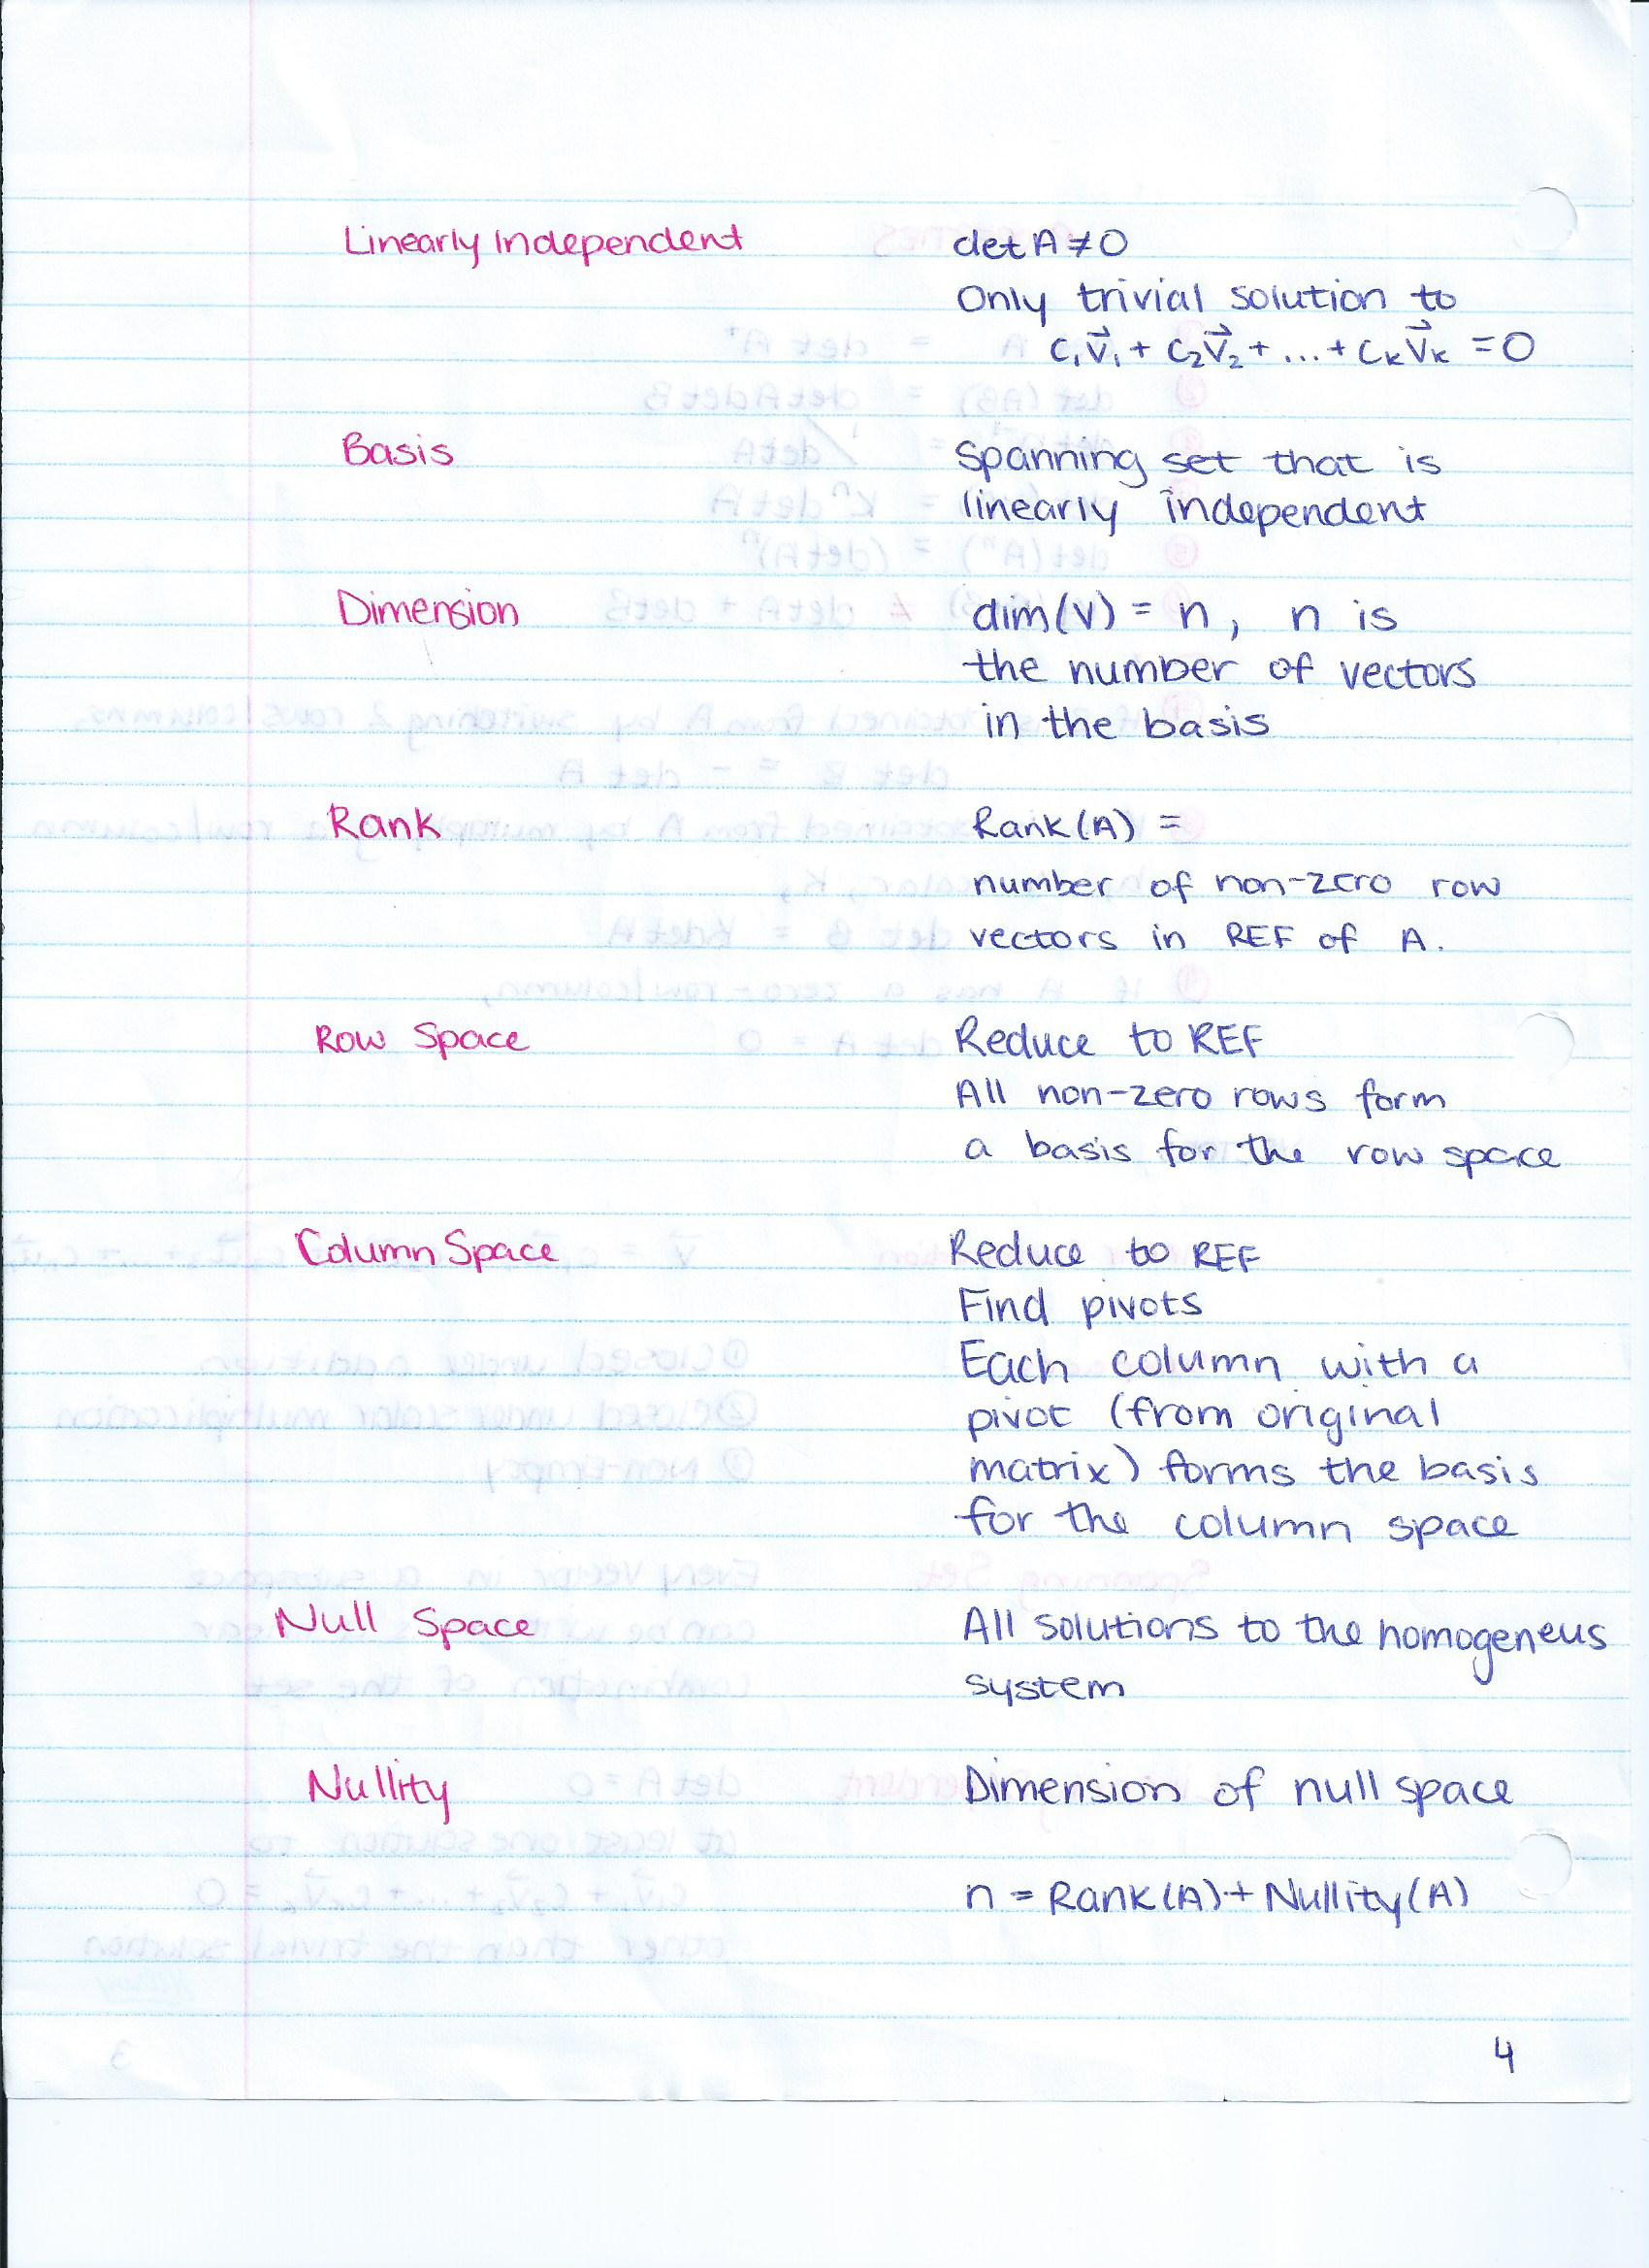 Linearly Independent det A ≠ 0
Only trivial solution to
c₁v⃗₁ + c₂v⃗₂ + ... + cₖv⃗ₖ = 0
Basis Spanning set that is
linearly independent
Dimension dim(V) = n, n is
the number of vectors
in the basis
Rank Rank(A) =
number of non-zero row
vectors in REF of A.
Row Space Reduce to REF
All non-zero rows form
a basis for the row space
Column Space Reduce to REF
Find pivots
Each column with a
pivot (from original
matrix) forms the basis
for the column space
Null Space All solutions to the homogeneus
system
Nullity Dimension of null space
n = Rank(A) + Nullity(A)
4